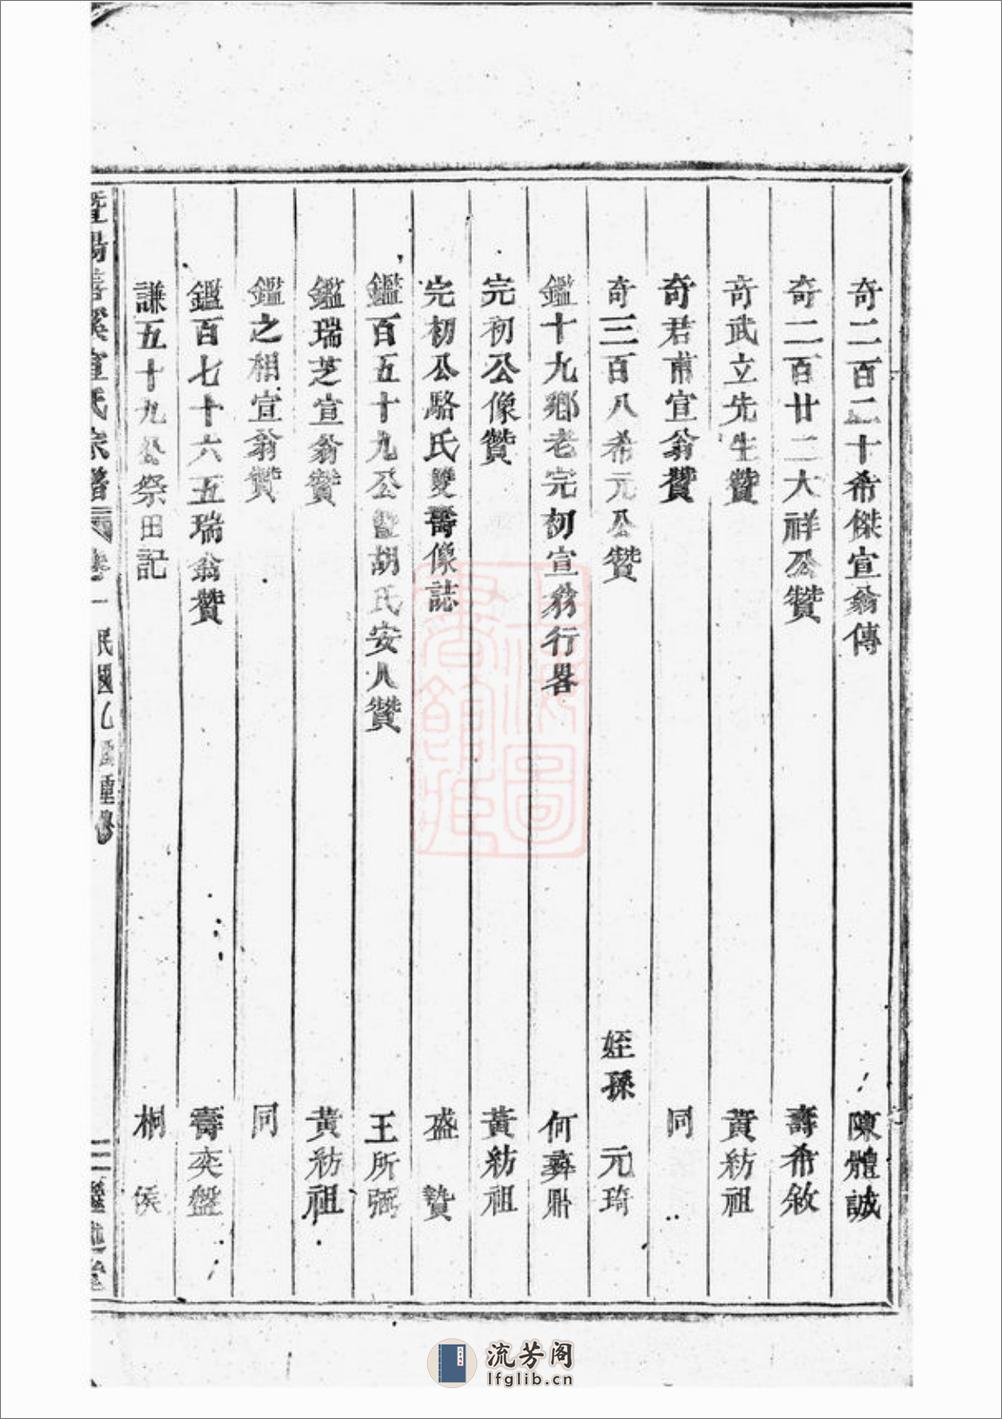 奇二百二十希傑宣翁傳 陳體誠
奇二百廿二大祥公贊 壽希敘
奇武立先生贊 黃紡祖
奇君甫宣翁贊 同
奇三百八希元公贊 姪孫 元琦
鑑十九鄉老完初宣翁行畧 何彝鼎
完初公像贊 黃紡祖
完初公駱氏雙壽像誌 盛贄
鑑百五十九公暨胡氏安人贊 王所弼
鑑瑞芝宣翁贊 黃紡祖
鑑之相宣翁贊 同
鑑百七十六五瑞翁贊 壽奕盤
謙五十九公祭田記 桐侯
暨陽 溪宣氏宗譜 卷一 民國乙 重修 三 繼述堂
上海圖書館藏
流芳阁
lfglib.cn